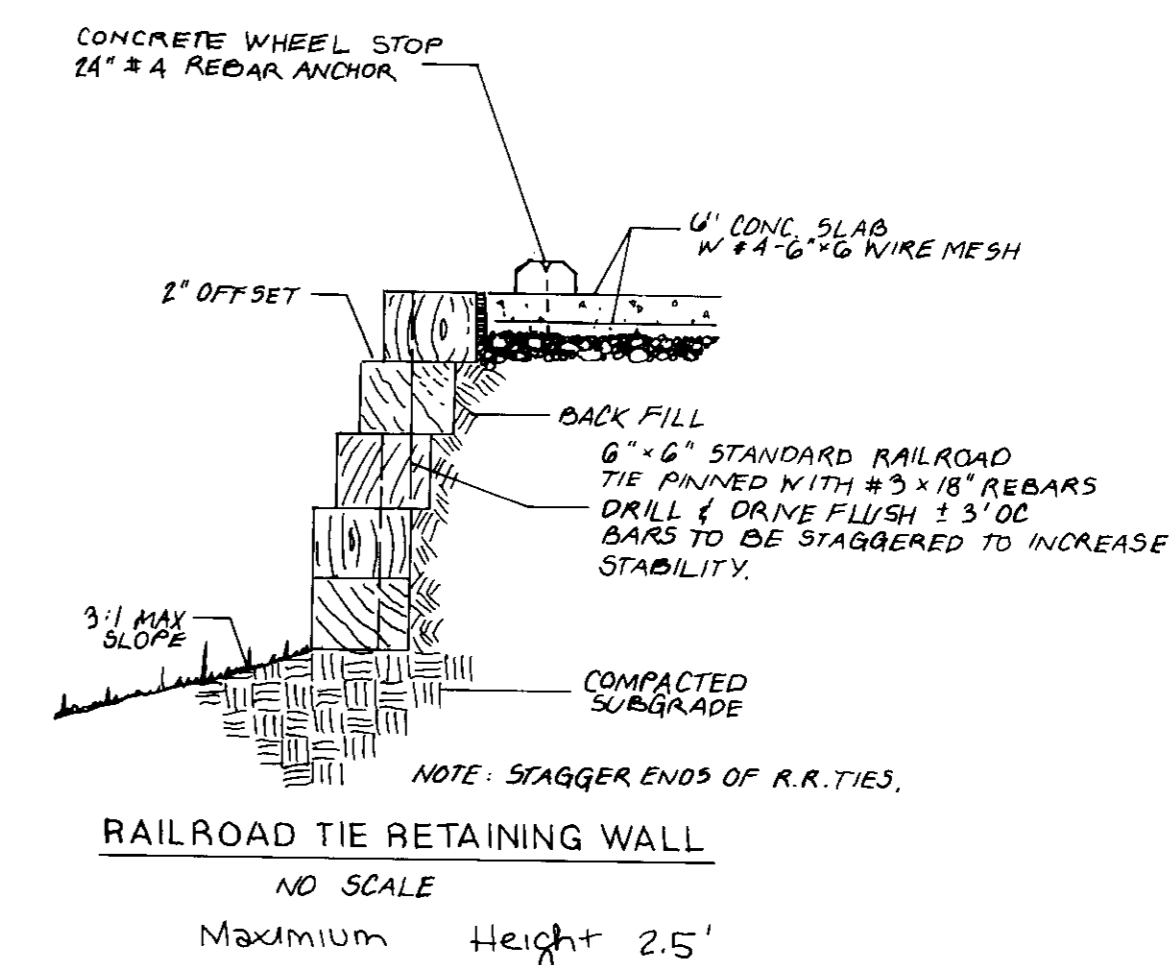 CONCRETE WHEEL STOP
24" #4 REBAR ANCHOR
6" CONC. SLAB
W #4-6"×6 WIRE MESH
2" OFFSET
BACK FILL
6"×6" STANDARD RAILROAD
TIE PINNED WITH #3×18" REBARS
DRILL & DRIVE FLUSH ± 3' OC
BARS TO BE STAGGERED TO INCREASE
STABILITY.
3:1 MAX
SLOPE
COMPACTED
SUBGRADE
NOTE: STAGGER ENDS OF R.R. TIES.
RAILROAD TIE RETAINING WALL
NO SCALE
Maximium Height 2.5'